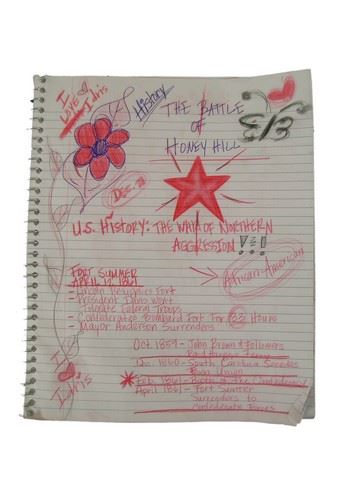 I
LOVE
Idris
History
THE BATTLE
OF
HONEY HILL
E/3
DEC.
U.S. HISTORY: THE WAR OF NORTHERN
AGGRESSION !
African-American
FORT SUMMER
APRIL 12, 1861
- Lincoln Resupplies Fort
- President Davis Won't
Tolerate Federal Troops
- Confederates Bombard Fort For 33 Hours
- Major Anderson Surrenders
Oct. 1859 - John Brown & Followers
Raid Harpers Ferry
Dec. 1860 - South Carolina Secedes
From Union
Feb. 1861 - Birth of the Confederacy
April 1861 - Fort Summer
Surrenders to
Confederate Forces
I
Idris